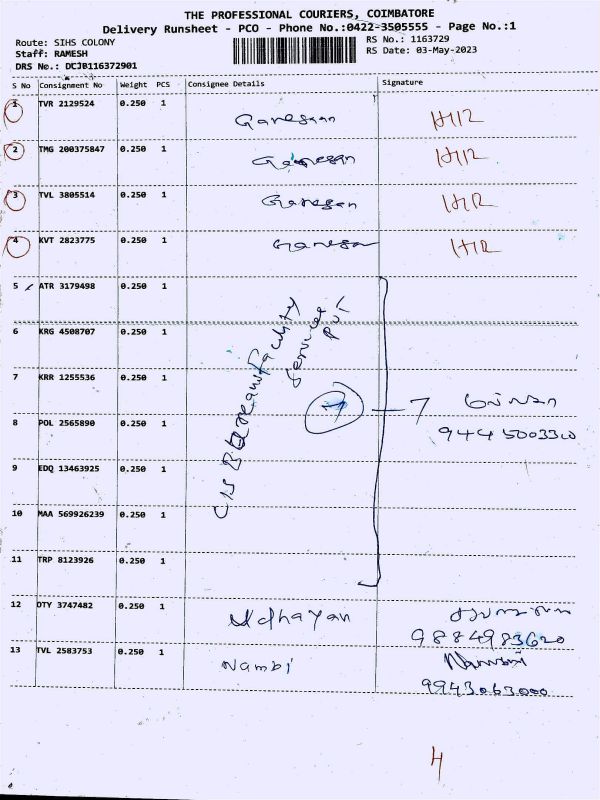 THE PROFESSIONAL COURIERS, COIMBATORE
Delivery Runsheet - PCO - Phone No.:0422-3505555 - Page No.:1
Route: SIHS COLONY
Staff: RAMESH
DRS No.: DCJB116372901
RS No.: 1163729
RS Date: 03-May-2023
S No Consignment No Weight PCS Consignee Details Signature
1 TVR 2129524 0.250 1 Ganesan H12
2 TMG 200375847 0.250 1 Ganesan H12
3 TVL 3805514 0.250 1 Ganesan
4 KVT 2823775 0.250 1 Ganesan
5 ATR 3179498 0.250 1
6 KRG 4508707 0.250 1
7 KRR 1255536 0.250 1
8 POL 2565890 0.250 1
9 EDQ 13463925 0.250 1
10 MAA 569926239 0.250 1
11 TRP 8123926 0.250 1
Facility
Services
Pvt
7
9445003310
12 DTY 3747482 0.250 1 Udhayan
9884983620
13 TVL 2583753 0.250 1 Nambi
9943063000
4